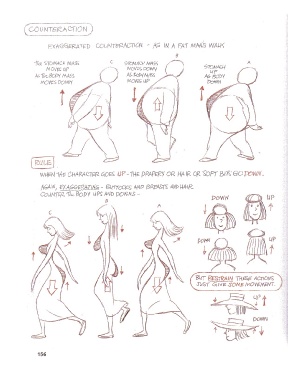 COUNTERACTION
EXAGGERATED COUNTERACTION - AS IN A FAT MAN'S WALK
C
B
A
THE STOMACH
MOVES UP
AS THE BODY MASS
MOVES DOWN
STOMACH MASS
MOVES DOWN
AS BODY MASS
MOVES UP
STOMACH
UP
AS BODY
DOWN
RULE
WHEN THE CHARACTER GOES UP - THE DRAPERY OR HAIR OR SOFT BITS GO DOWN.
AGAIN, EXAGGERATING - BUTTOCKS AND BREASTS AND HAIR
COUNTER THE BODY UPS AND DOWNS -
C
B
A
DOWN
UP
DOWN
UP
BUT RESTRAIN THESE ACTIONS
JUST GIVE SOME MOVEMENT.
UP
DOWN
156